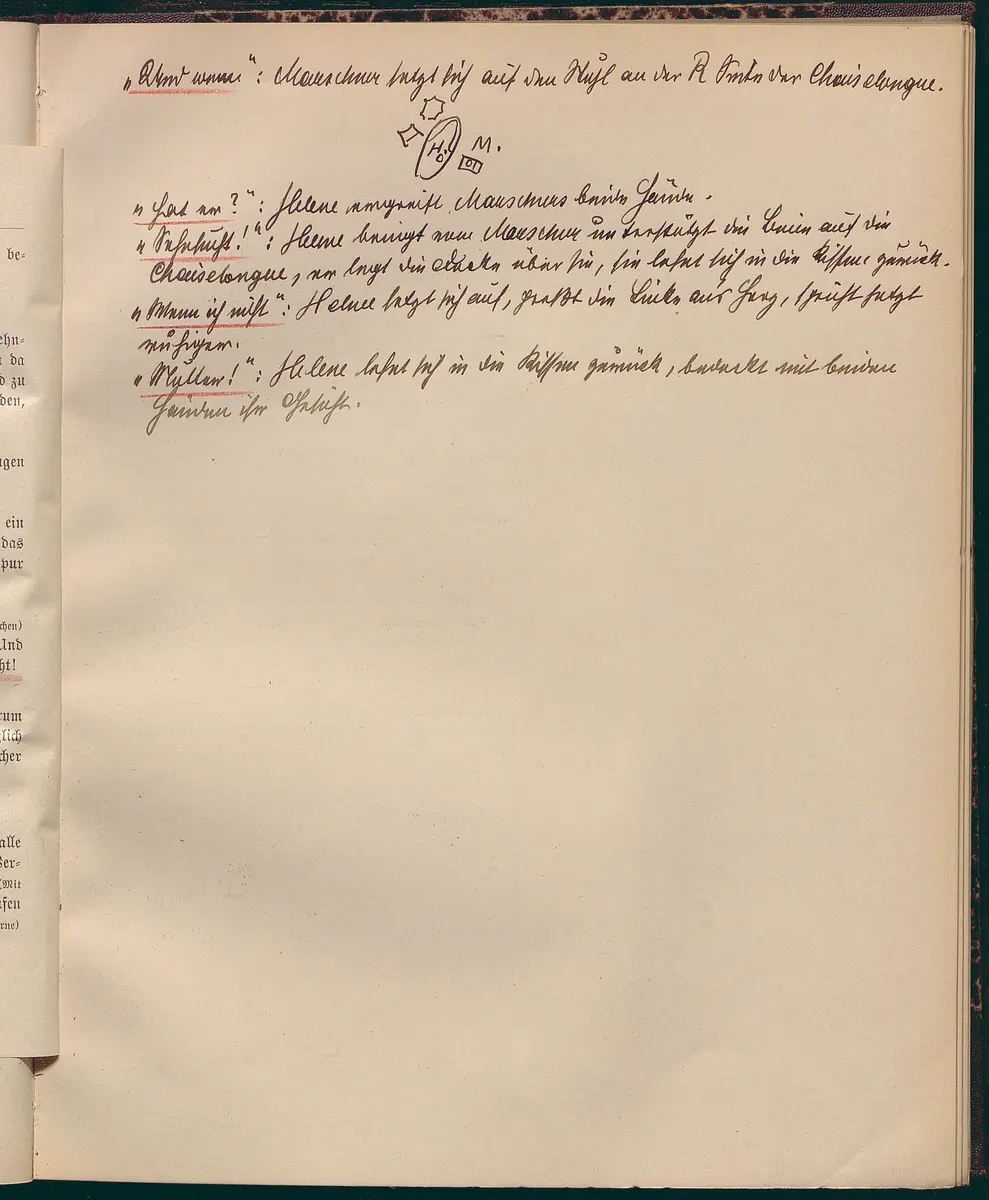 be-
ehn-
da
d zu
den,
gen
ein
das
pur
chen)
Und
ht!
rum
lich
cher
alle
ßer-
(Mit
fen
rne)
„Und wenn“: Marschner setzt sich auf den Stuhl an der R Seite der Chaiselongue.
H. M.
„Hat er?“: Helene ergreift Marschners beide Hände.
„Sehnsucht!“: Helene bringt vom Marschner unterstützt die Beine auf die
Chaiselongue, er legt die Decke über sie, sie lehnt sich in die Kissen zurück.
„Wenn ich nicht“: Helene setzt sich auf, preßt die Linke aus Herz, spricht jetzt
ruhiger.
„Mutter!“: Helene lehnt sich in die Kissen zurück, bedeckt mit beiden
Händen ihr Gesicht.